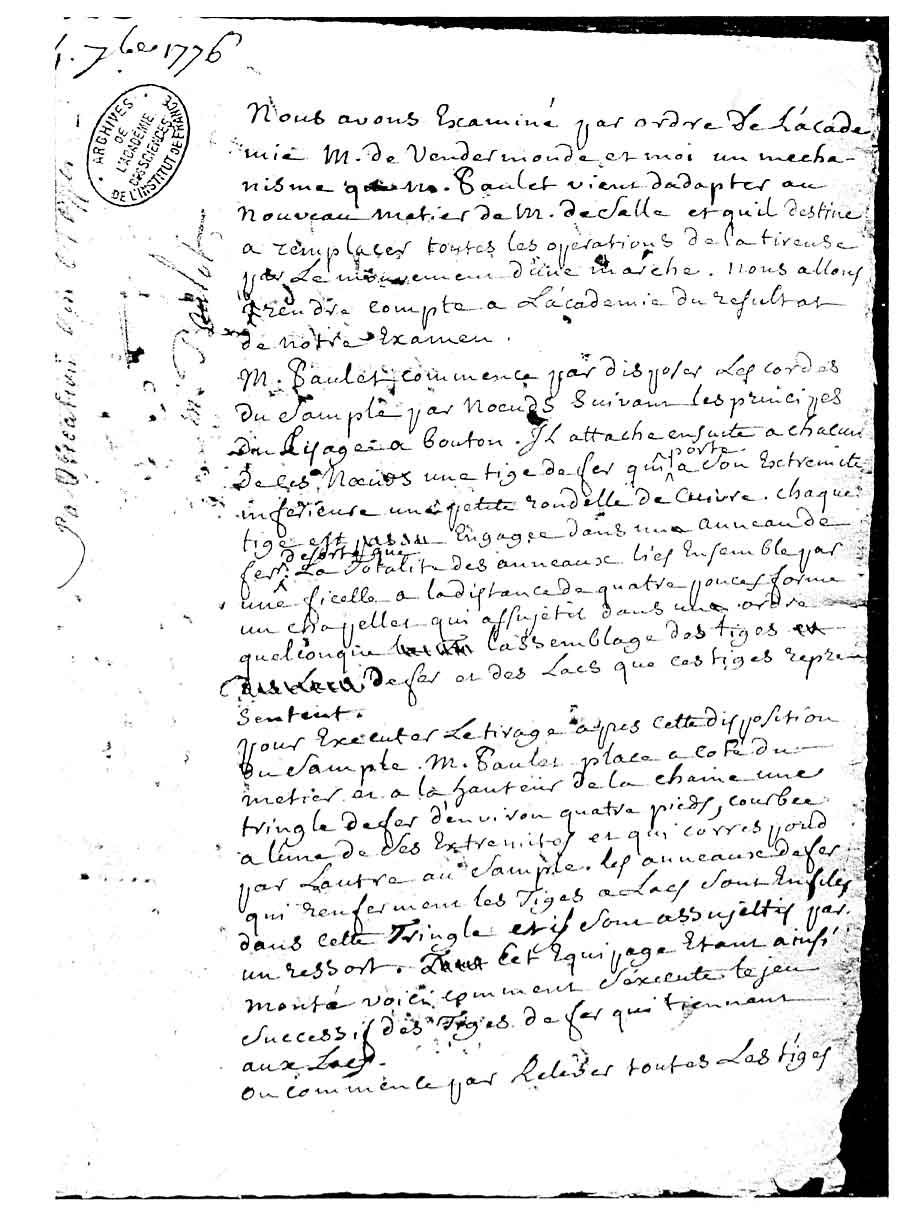 7bre 1776
ARCHIVES
DE
L'ACADÉMIE
DES SCIENCES
DE L'INSTITUT DE FRANCE
Nous avons Examiné par ordre de L'acade
mie M. de Vendermonde et moi un mecha-
nisme que M. Paulet vient dadapter au
nouveau metier de M. deSalle et quil destine
a remplacer toutes les operations de la tireuse
par Le mouvement d'une marche. nous allons
rendre compte a L'academie du resultat
de notre Examen.
M. Paulet commence par disposer Les cordes
du Sample par Noeuds Suivant les principes
du Lisage a bouton. Il attache ensuite a chacun
de ces Noeuds une tige de fer qui porte a son Extremite
inferieure une petite rondelle de Cuivre. chaque
tige est Engagée dans un anneau de
fer. desorte que La Totalité des anneaux liés Ensemble par
une ficelle a la distance de quatre pouces forme
un chapellet qui assujétit dans un ordre
quelconque l'assemblage des tiges
de fer et des Lacs que ces tiges repre-
sentent.
pour Executer Le tirage apres cette disposition
du Sample. M. Paulet place a coté du
metier et a la hauteur de la chaine une
tringle de fer d'environ quatre pieds, courbee
a lune de Ses Extremités et qui correspond
par Lautre au Sample. les anneaux de fer
qui renferment les Tiges a Lacs Sont Enfilés
dans cette Tringle et ils Sont assujettis par
un ressort. Cet Equipage Etant ainsi
monté voici comment S'execute le jeu
successif des Tiges de fer qui tiennent
aux Lacs.
On commence par Relever toutes Les tiges
M. Paulet